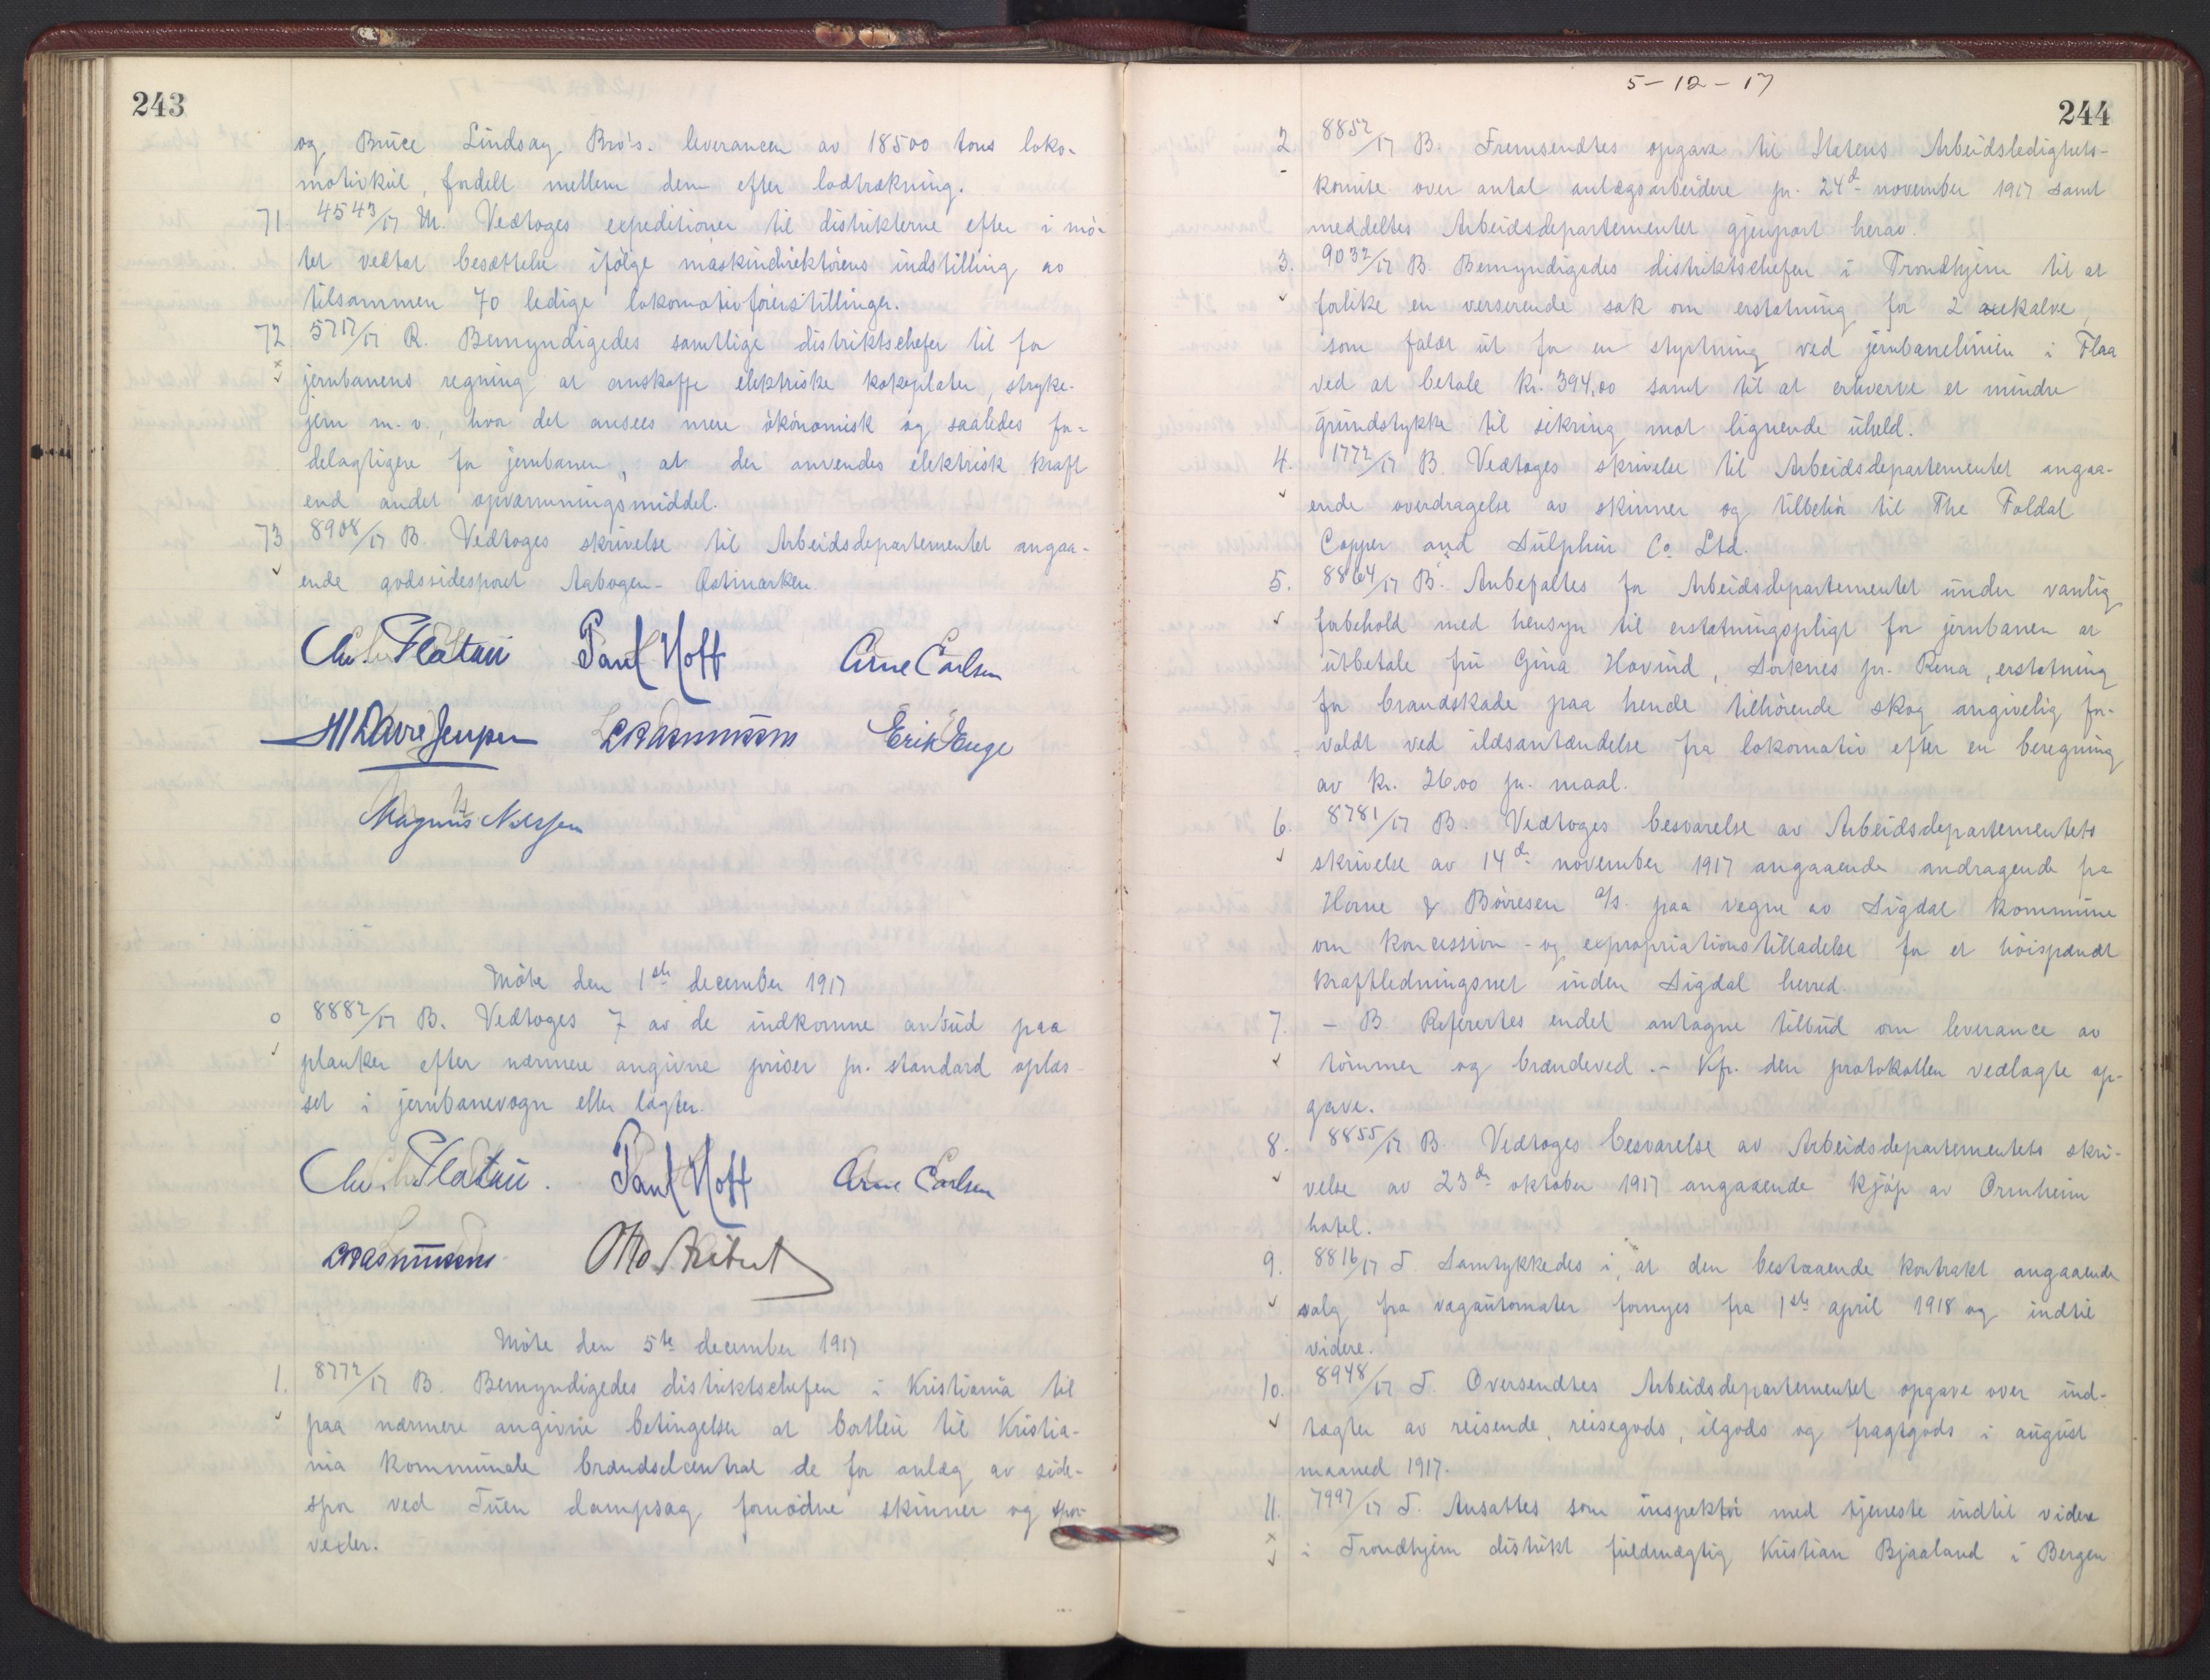 243
og Bruce Lindsay Bro's. leverancen av 18500 tons loko-
motivkul, fordelt mellem dem efter lodtrækning.
71. 4543/17 M. Vedtoges expeditioner til distrikterne efter i mö-
tet vedtat besættelse ifölge maskindirektörens indstilling av
tilsammen 70 ledige lokomotivförerstillinger.
72 5717/17 R. Bemyndigedes samtlige distriktschefer til for
jernbanens regning at anskaffe elektriske kokeplater, stryke-
jern m.v., hvor det ansees mere ökonomisk og saaledes for-
delagtigere for jernbanen, at der anvendes elektrisk kraft
end andet opvarmningsmiddel.
73 8908/17 B. Vedtoges skrivelse til Arbeidsdepartementet angaa-
ende godssidesporet Aabogen - Östmarken.
Chr. Platou Paul Hoff Arne Carlsen
Erik Enge
Magnus Nilssen
Möte den 1ste december 1917
0 8882/17 B. Vedtoges 7 av de indkomne anbud paa
planker efter nærmere angivne priser pr. standard oplas-
set i jernbanevogn eller lägter.
Chr. Platou. Paul Hoff Arne Carlsen
Otto
Möte den 5te december 1917
1. 8772/17 B. Bemyndigedes distriktschefen i Kristiania til
paa nærmere angivne betingelser at bortleie til Kristia-
nia kommunale brændselcentral de for anlæg av side-
spor ved Tuen dampsag fornödne skinner og spor-
vexler.
5-12-17
244
2. 8852/17 B. Fremsendtes opgave til Statens Arbeidsledighets-
komite over antal anlægsarbeidere pr. 24de november 1917 samt
meddeltes Arbeidsdepartementet gjenpart herav.
3. 9032/17 B. Bemyndigedes distriktschefen i Trondhjem til at
forlike en verserende sak om erstatning for 2 kalve,
som faldt ut for en styrtning ved jernbanelinien i Flaa
ved at betale kr. 394,00 samt til at erhverve et mindre
grundstykke til sikring mot lignende uheld.
4. 1772/17 B. Vedtoges skrivelse til Arbeidsdepartementet angaa-
ende overdragelse av skinner og tilbehör til The Foldal
Copper and Sulphur Co Ltd.
5. 8864/17 B. Anbefaltes for Arbeidsdepartementet under vanlig
forbehold med hensyn til erstatningspligt for jernbanen at
utbetale fru Gina Hovind, Sorknes pr. Rena, erstatning
for brandskade paa hende tilhörende skog angivelig for-
voldt ved ildsantændelse fra lokomotiv efter en beregning
av kr. 26,00 pr. maal.
6. 8781/17 B. Vedtoges besvarelse av Arbeidsdepartementets
skrivelse av 14de november 1917 angaaende andragende fra
Horne & Böiresen A/S. paa vegne av Sigdal kommune
om koncession - og expropriationstilladelse for et höispændt
kraftledningsnet inden Sigdal herred.
7. - B Referertes endel antagne tilbud om leverance av
tömmer og brændeved. - Kfr. den protokollen vedlagte op-
gave.
8. 8855/17 B. Vedtoges besvarelse av Arbeidsdepartementets skri-
velse av 23de oktober 1917 angaaende kjöp av Ormheim
hotel.
9. 8816/17 T. Samtykkedes i, at den bestaaende kontrakt angaaende
salg fra vagautomater fornyes fra 1ste april 1918 og indtil
videre.
10. 8948/17 T. Oversendtes Arbeidsdepartementet opgave over ind-
tægter av reisende, reisegods, ilgods og fragtgods i august
maaned 1917.
11. 7997/17 T. Ansattes som inspektör med tjeneste indtil videre
i Trondhjem distrikt fuldmægtig Kristian Bjaaland i Bergen